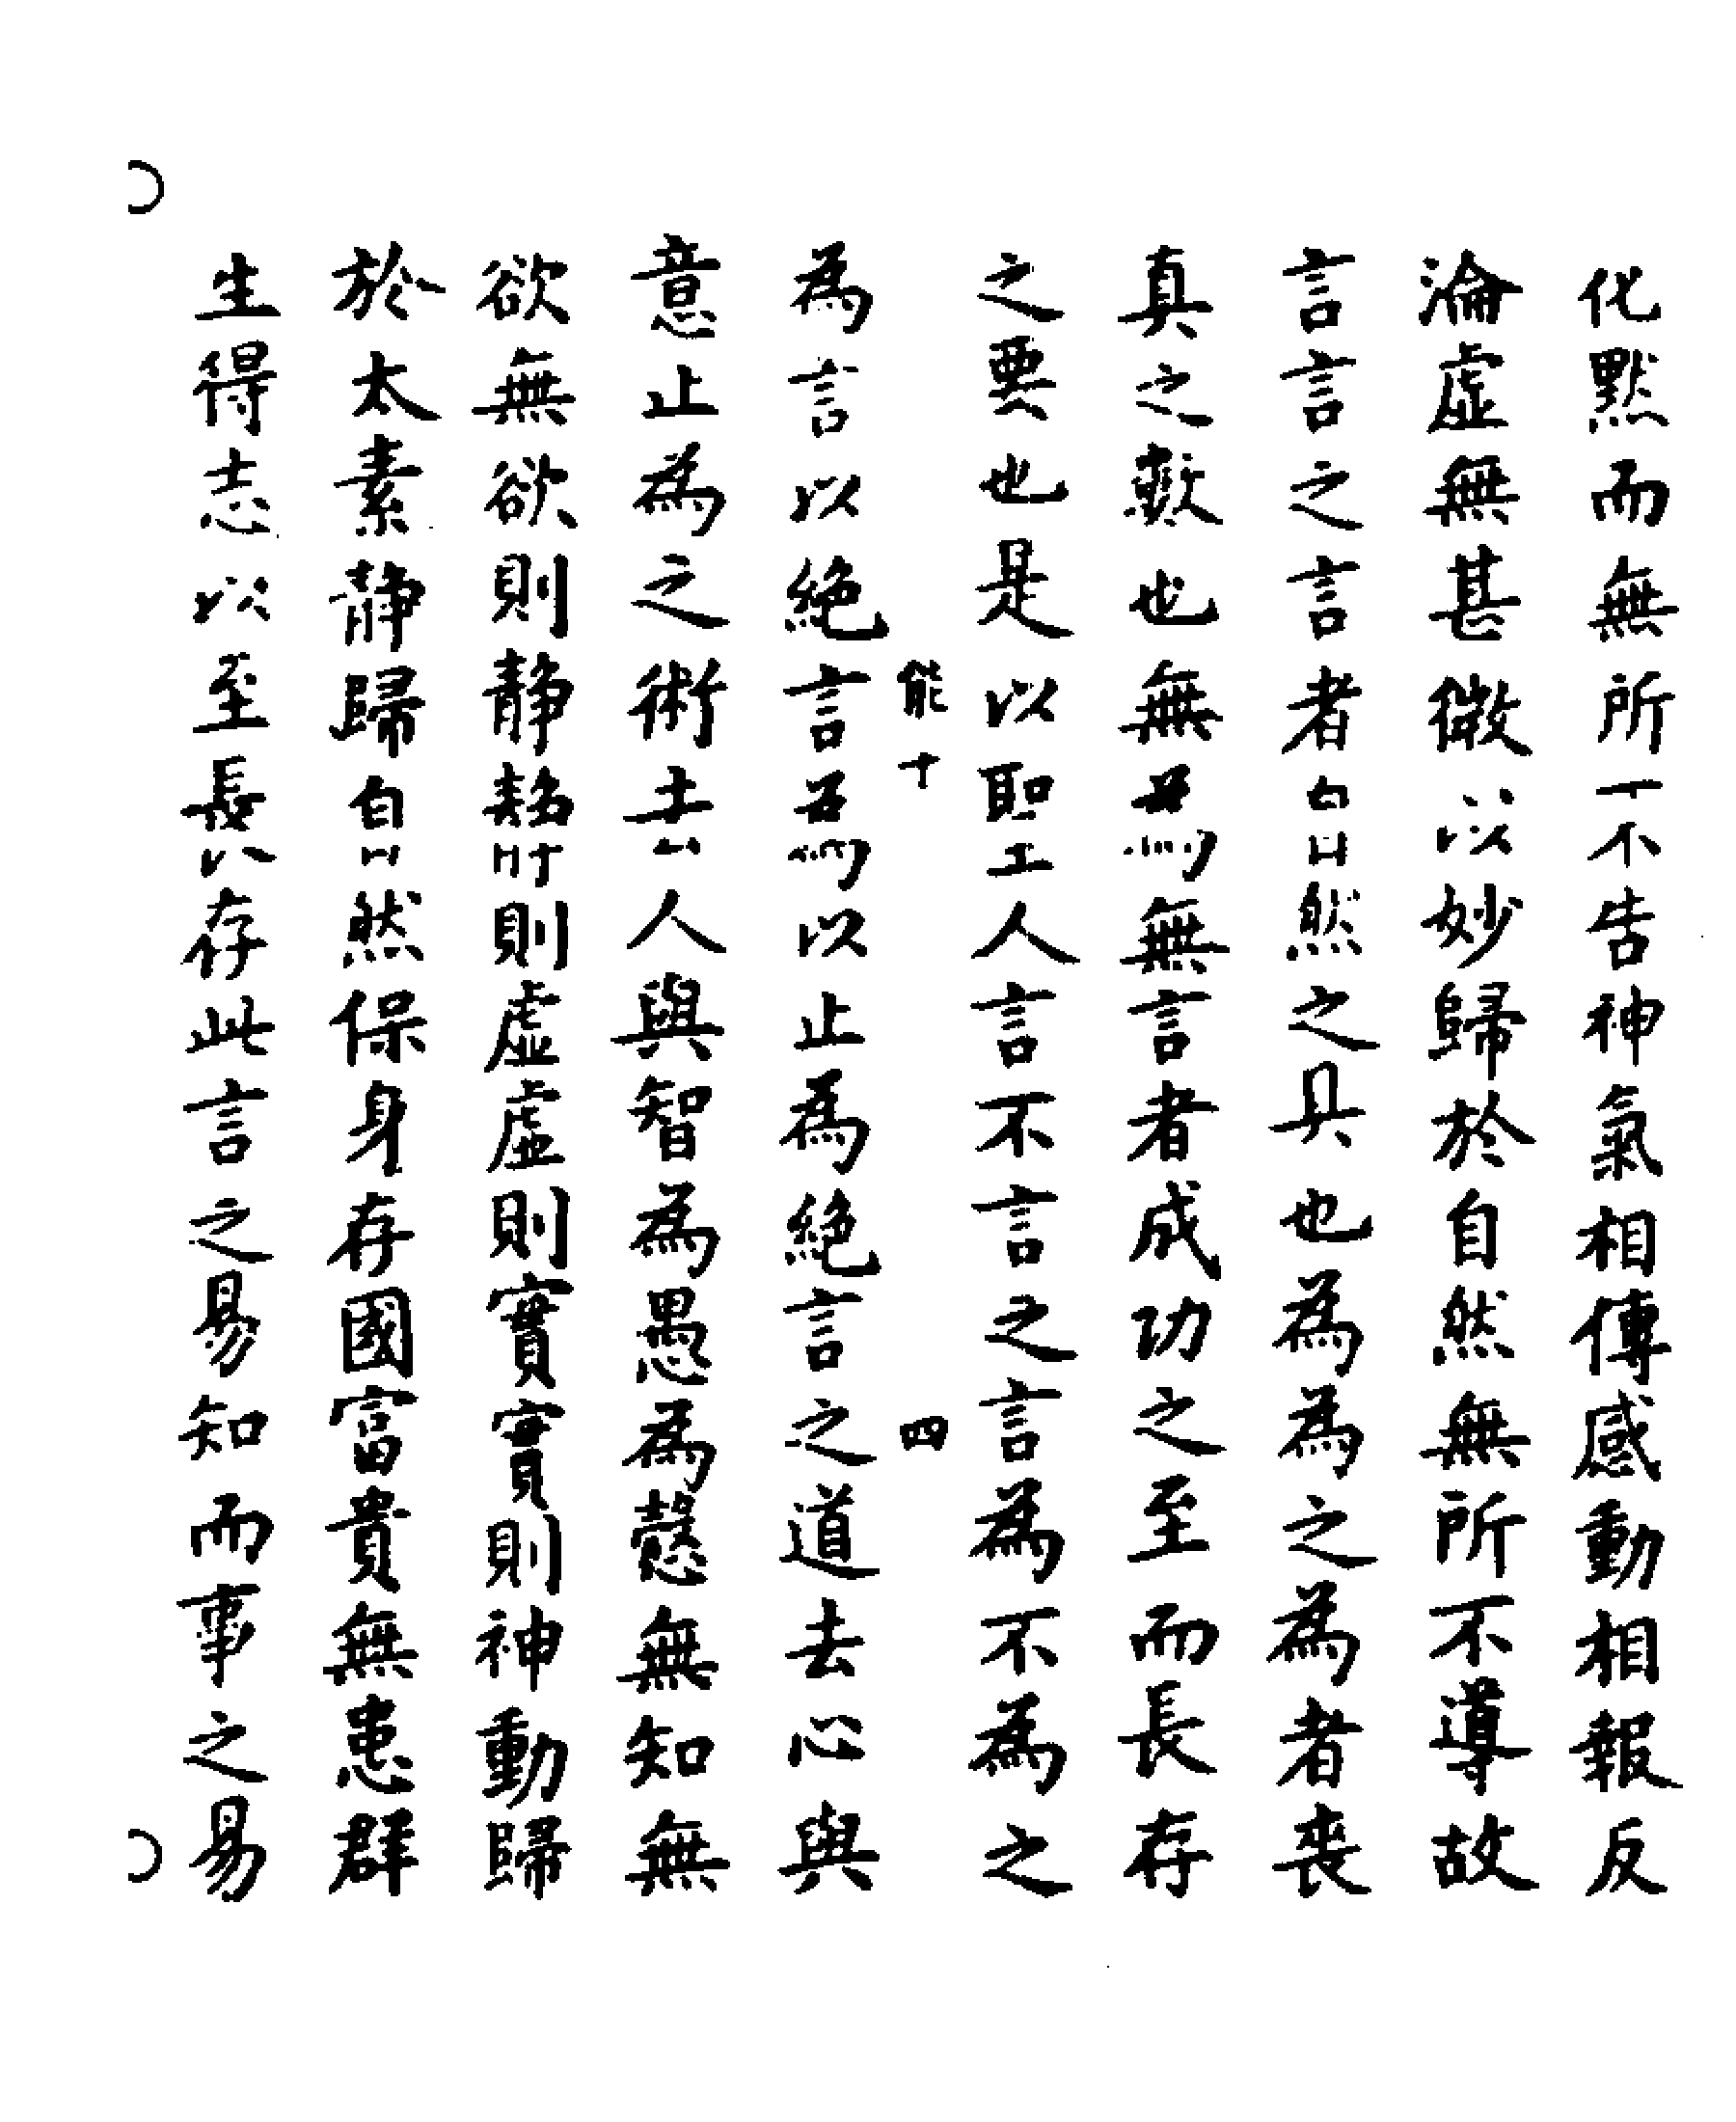 化黙而無所不告神氣相傳感動相報反
淪虛無甚微以妙歸於自然無所不導故
言言之言者自然之具也為為之為者喪
真之數也無為無言者成功之至而長存
之要也是以聖人言不言之言為不為之
能十　四
為言以絕言為以止為絕言之道去心與
意止為之術去人與智為愚為慤無知無
欲無欲則静静則虛虛則實實則神動歸
於太素静歸自然保身存國富貴無患群
生得志以至長存此言之易知而事之易